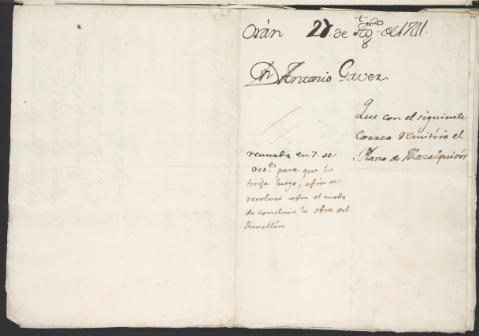 Orán 27. de Ag.to de 1711.
Dn Antonio Gavez
Que con el siguiente
Correo Remitirá el
Plano de Mazalquivir
para que lo
dirija luego, a fin de
resolver sobre el modo
de concluir la obra del
Revellin